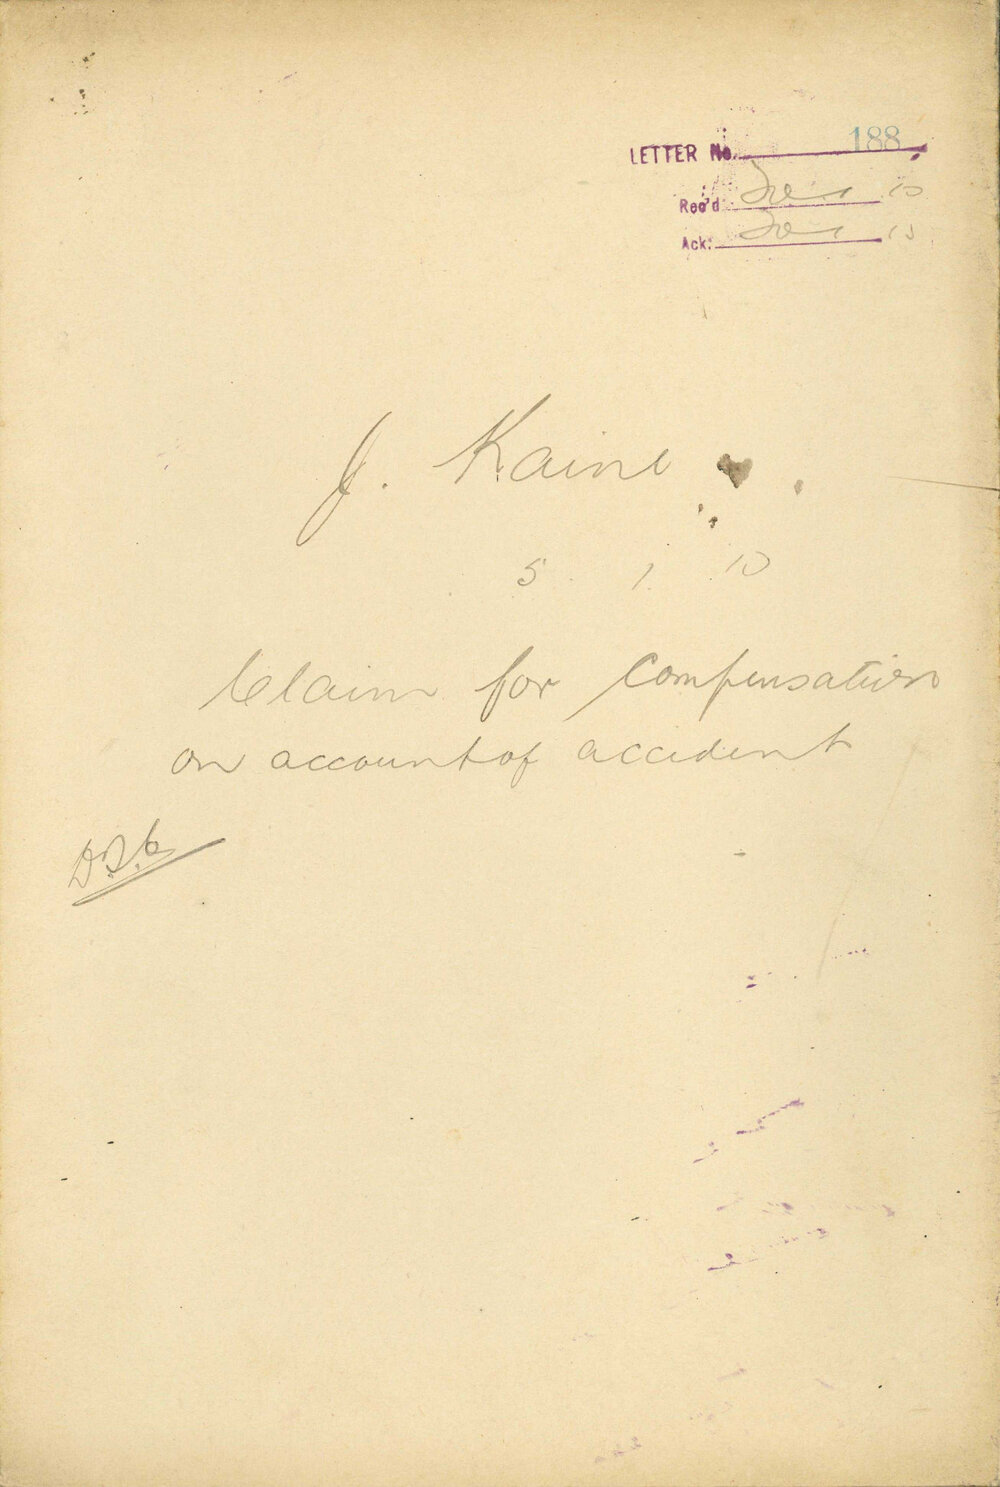 LETTER No. 188
Rec'd 10
Ack:
J. Kaine
5 1 10
Claim for Compensation
on account of accident